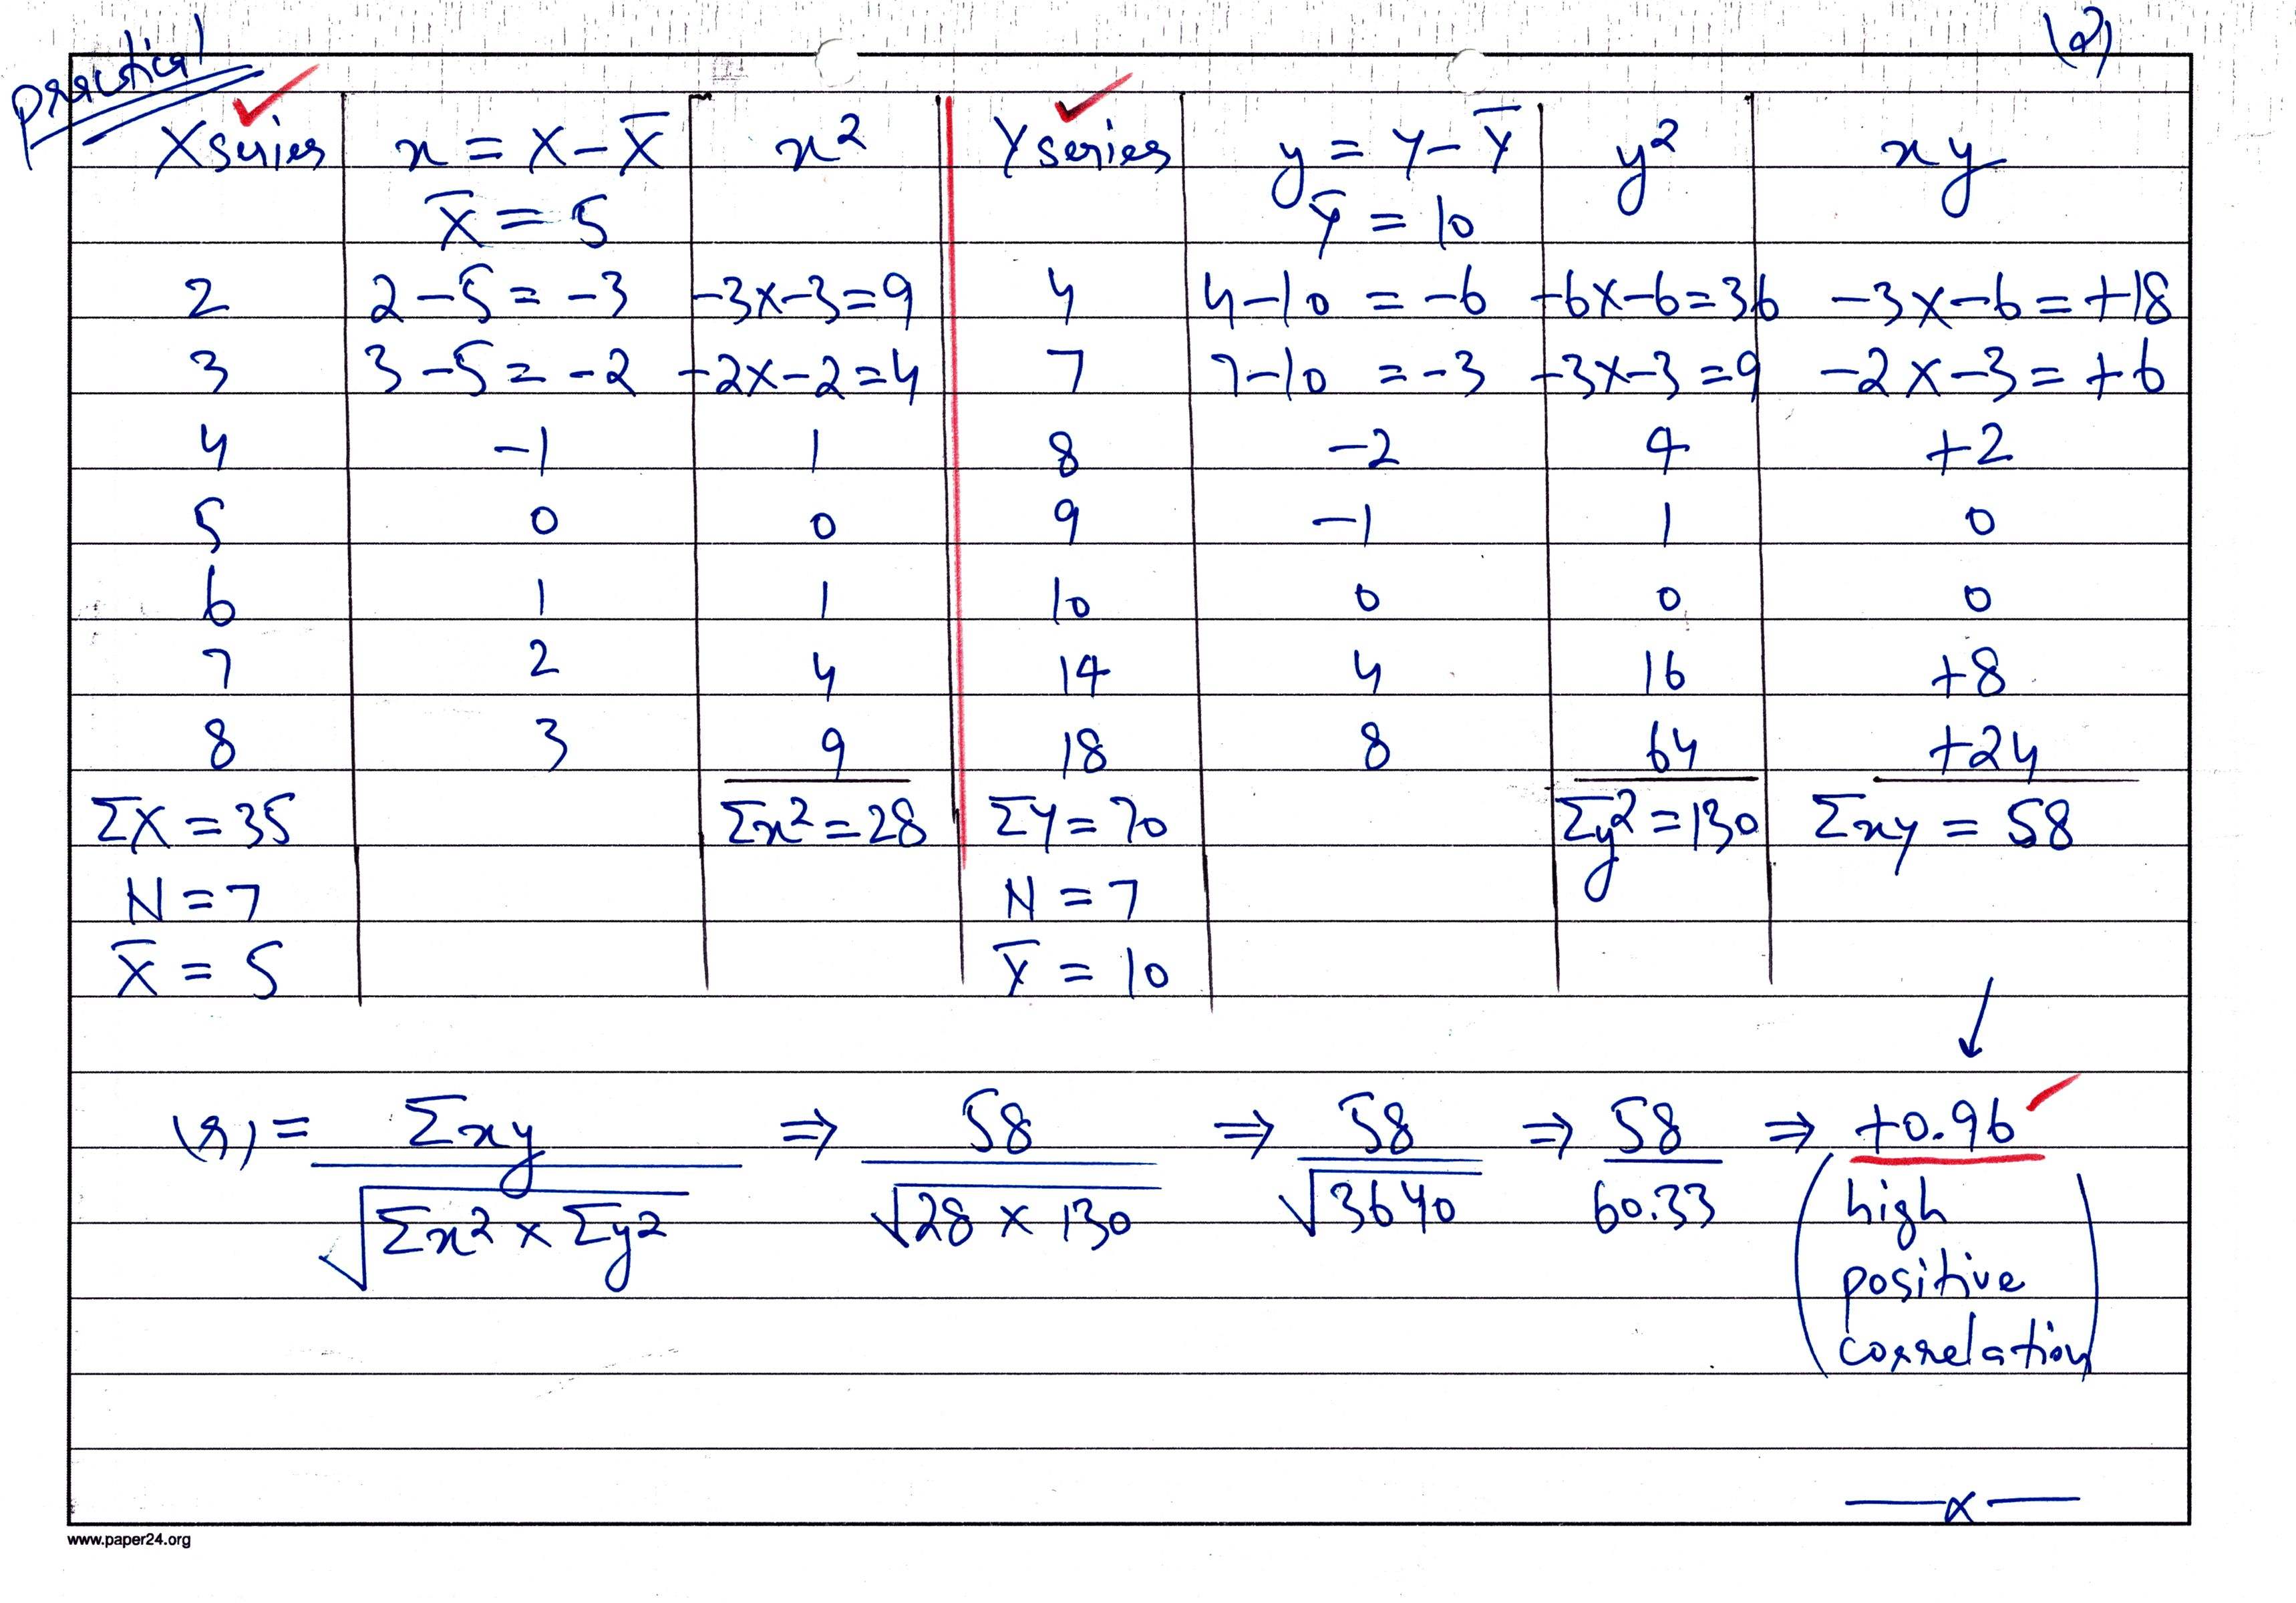 (2)
practical
X series x = X - X̄ x² Y series y = Y - Ȳ y² xy
X̄ = 5 Ȳ = 10
2 2-5 = -3 -3x-3=9 4 4-10 = -6 -6x-6=36 -3x-6=+18
3 3-5 = -2 -2x-2=4 7 7-10 = -3 -3x-3=9 -2x-3=+6
4 -1 1 8 -2 4 +2
5 0 0 9 -1 1 0
6 1 1 10 0 0 0
7 2 4 14 4 16 +8
8 3 9 18 8 64 +24
ΣX = 35 Σx² = 28 ΣY = 70 Σy² = 130 Σxy = 58
N = 7 N = 7
X̄ = 5 Ȳ = 10
(r) = Σxy / √Σx² x Σy² ⇒ 58 / √28 x 130 ⇒ 58 / √3640 ⇒ 58 / 60.33 ⇒ +0.96
(high
positive
correlation)
—x—
www.paper24.org